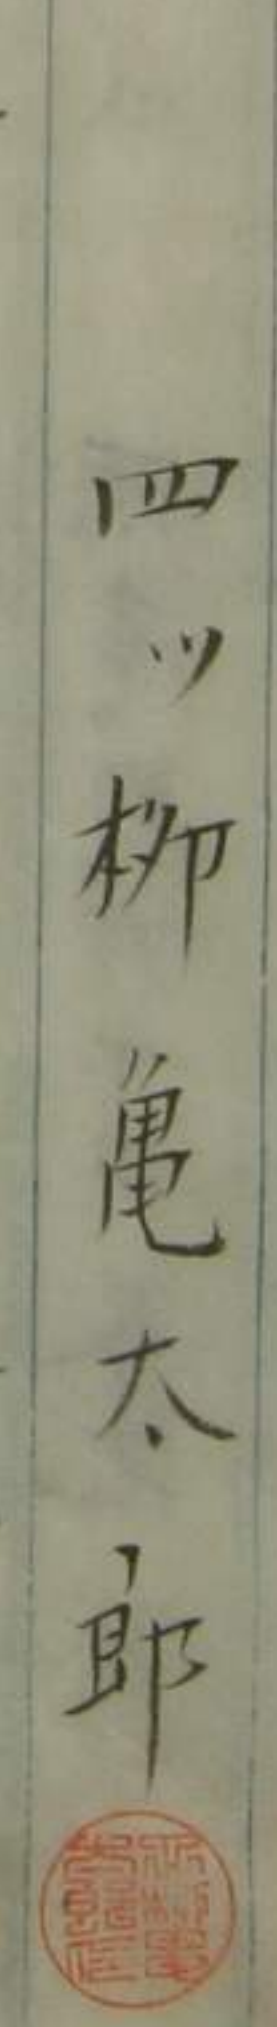 四ッ柳亀太郎